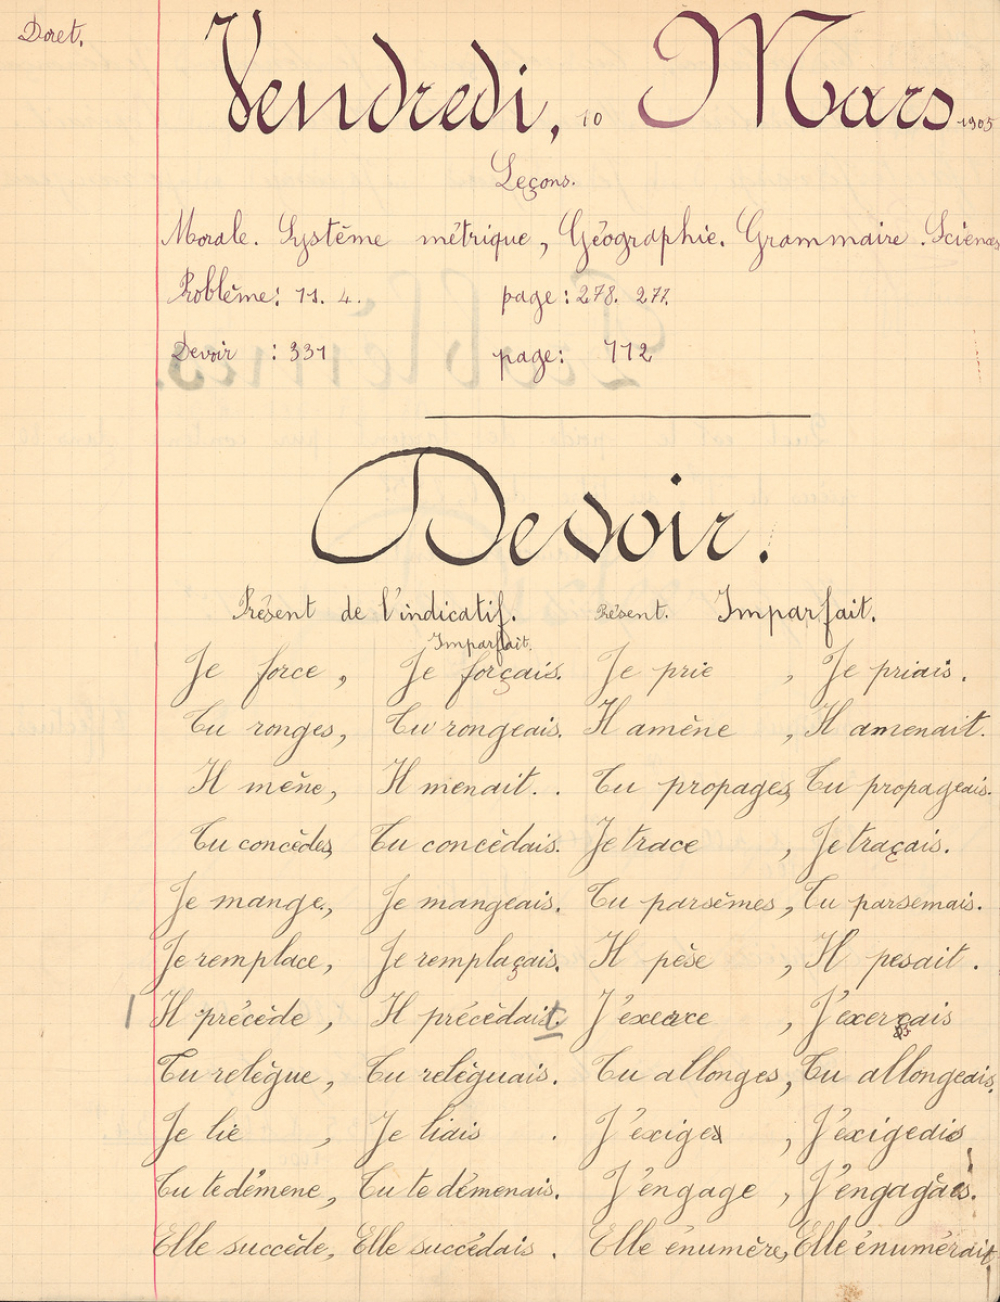 Doret.
Vendredi, 10 Mars 1905
Leçons.
Morale. Système métrique, Géographie. Grammaire. Sciences
Problème: 11. 4. page: 278. 277.
Devoir : 331 page: 112
Devoir.
Présent de l'indicatif. Présent. Imparfait.
Imparfait.
Je force, Je forçais. Je prie, Je priais.
Tu ronges, Tu rongeais. Il amène, Il amenait.
Il mène, Il menait. Tu propages, Tu propageais.
Tu concèdes, Tu concèdais. Je trace, Je traçais.
Je mange, Je mangeais. Tu parsèmes, Tu parsemais.
Je remplace, Je remplaçais. Il pèse, Il pesait.
Il précède, Il précèdait. J'exerce, J'exerçais
Tu relègue, Tu relèguais. Tu allonges, Tu allongeais.
Je lie, Je liais. J'exige, J'exigeais
Tu te démene, Tu te démenais. J'engage, J'engagais.
Elle succède, Elle succédais. Elle énumère, Elle énumérait